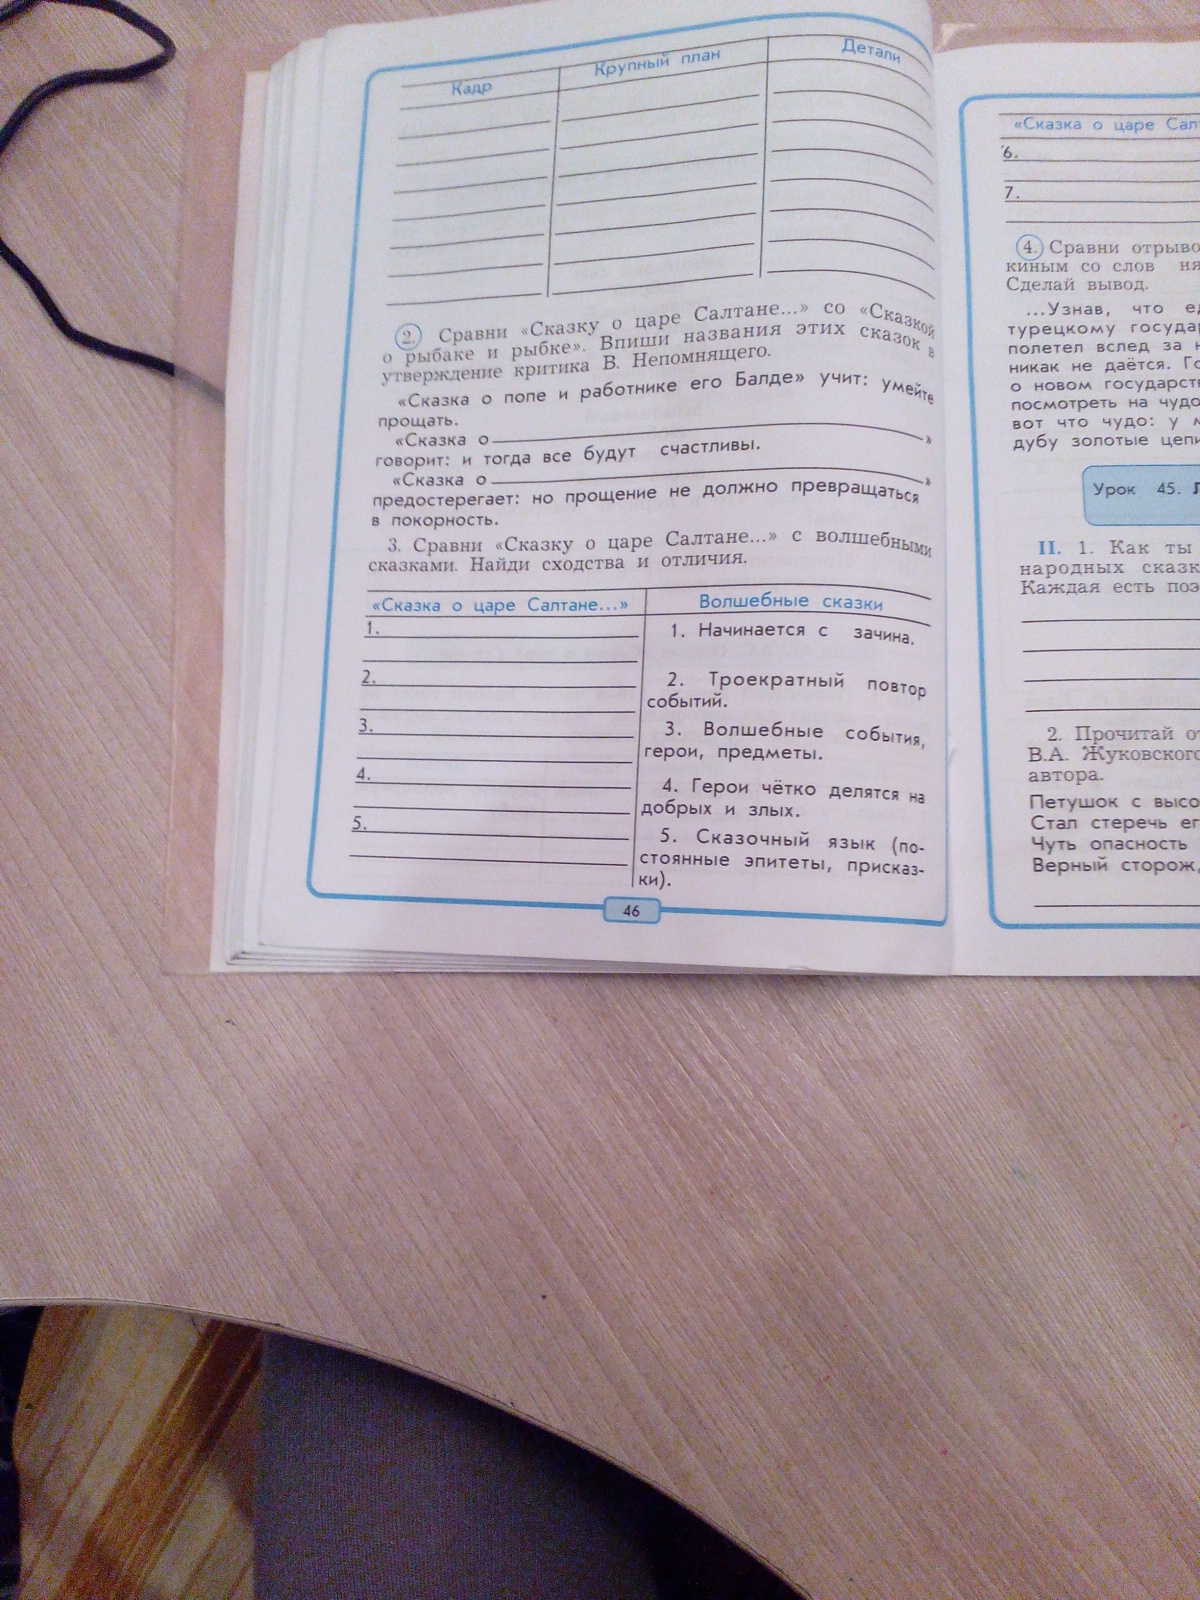 Кадр
Крупный план
Детали
2. Сравни «Сказку о царе Салтане...» со «Сказкой
о рыбаке и рыбке». Впиши названия этих сказок в
утверждение критика В. Непомнящего.
«Сказка о попе и работнике его Балде» учит: умейте
прощать.
«Сказка о »
говорит: и тогда все будут счастливы.
«Сказка о »
предостерегает: но прощение не должно превращаться
в покорность.
3. Сравни «Сказку о царе Салтане...» с волшебными
сказками. Найди сходства и отличия.
«Сказка о царе Салтане...»
Волшебные сказки
1.
1. Начинается с зачина.
2.
2. Троекратный повтор
событий.
3.
3. Волшебные события,
герои, предметы.
4.
4. Герои чётко делятся на
добрых и злых.
5.
5. Сказочный язык (по-
стоянные эпитеты, присказ-
ки).
46
«Сказка о царе
6.
7.
4. Сравни
киным со слов
Сделай вывод.
...Узнав, что
турецкому
полетел вслед за
никак не даётся.
о новом
посмотреть на
вот что чудо: у
дубу золотые
Урок 45.
II. 1. Как ты
народных
Каждая есть
2. Прочитай
В.А. Жуковского
автора.
Петушок с
Стал стеречь
Чуть опасность
Верный сторож,